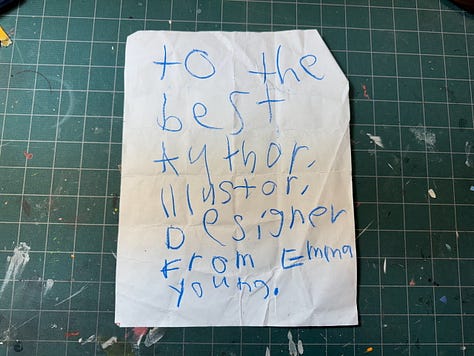 to the
best
Author,
Illustor,
Designer
From Emma
young.